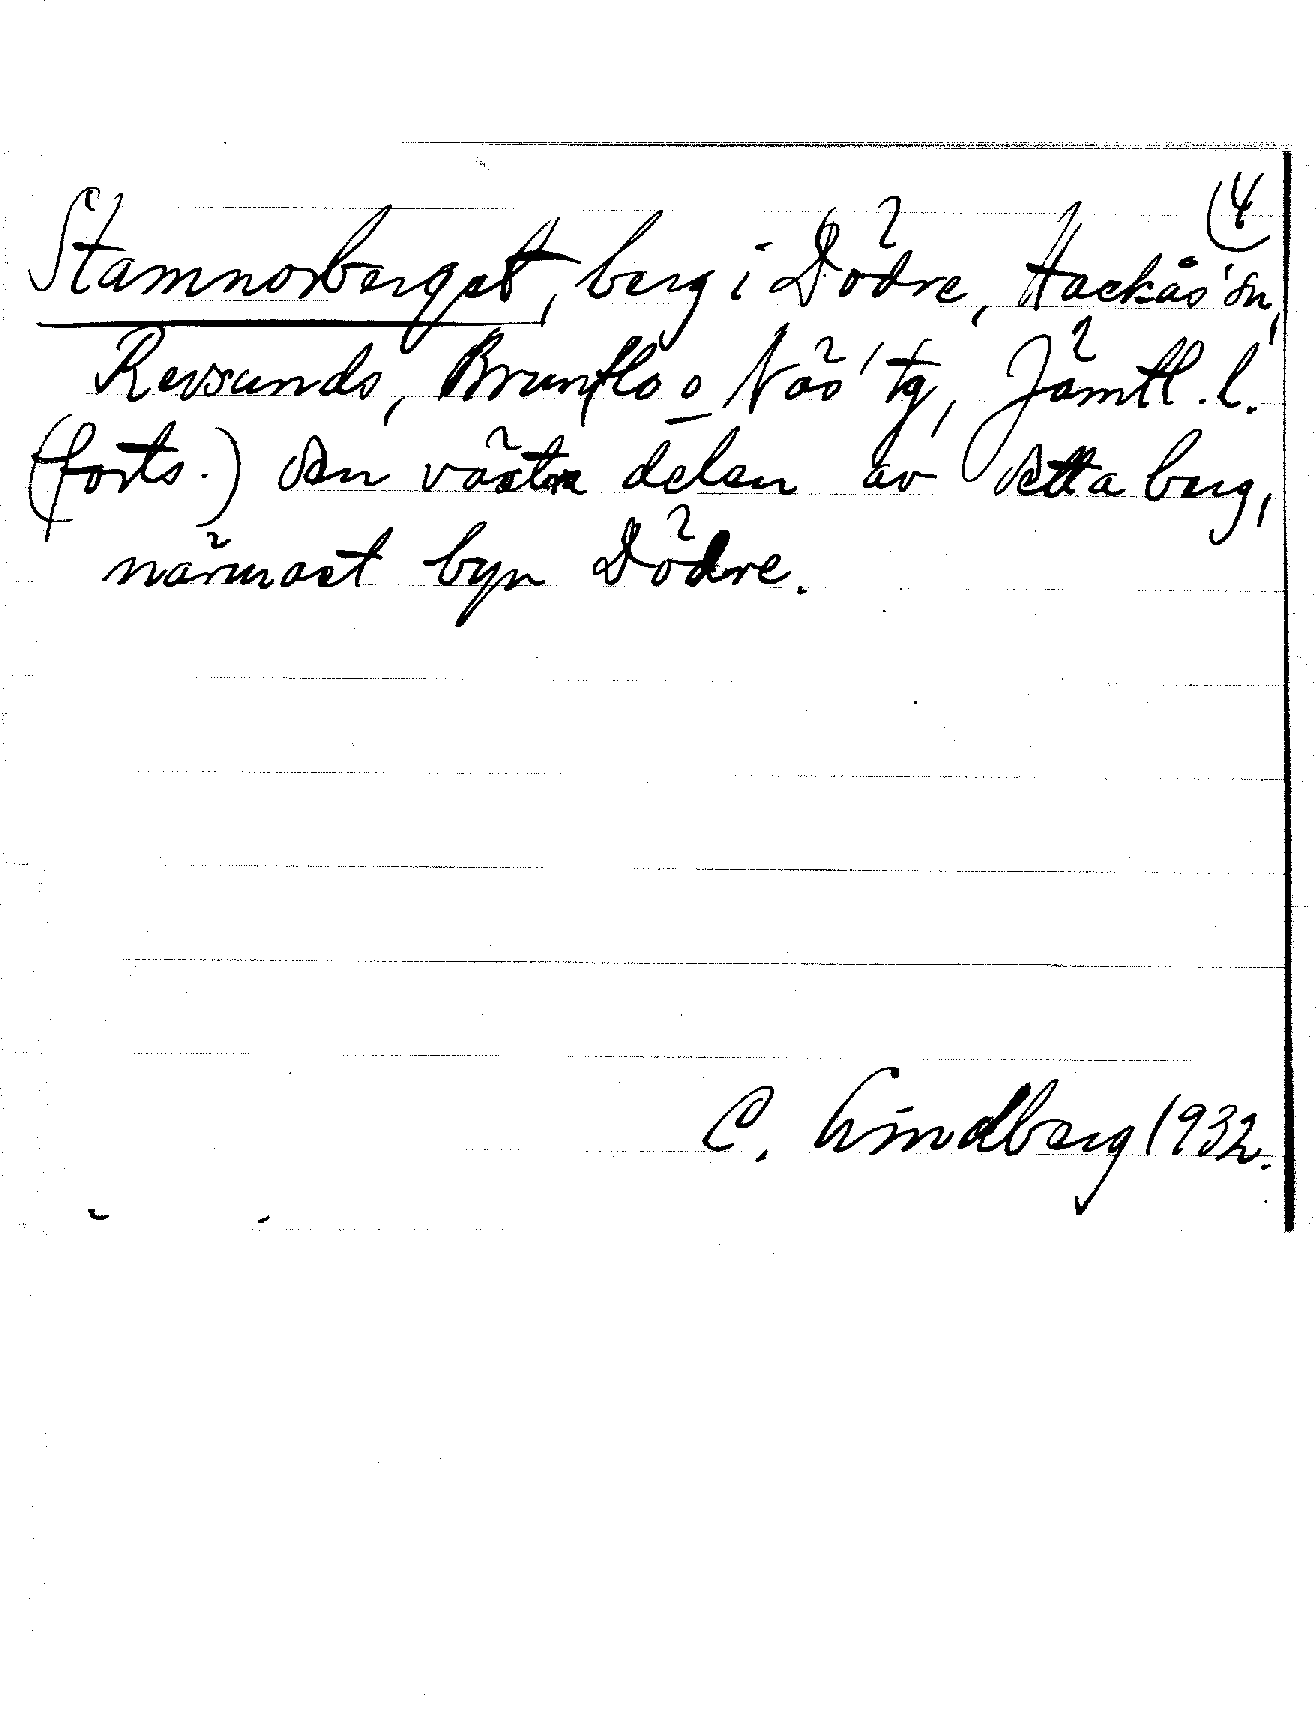 (4
Stamnorberget, berg i Dödre, Hackås sn,
Revsunds, Brunflo o Näs' tg, Jämtl. l.
(forts.) den västra delen av detta berg,
närmast byn Dödre.
C. Lindberg 1932.